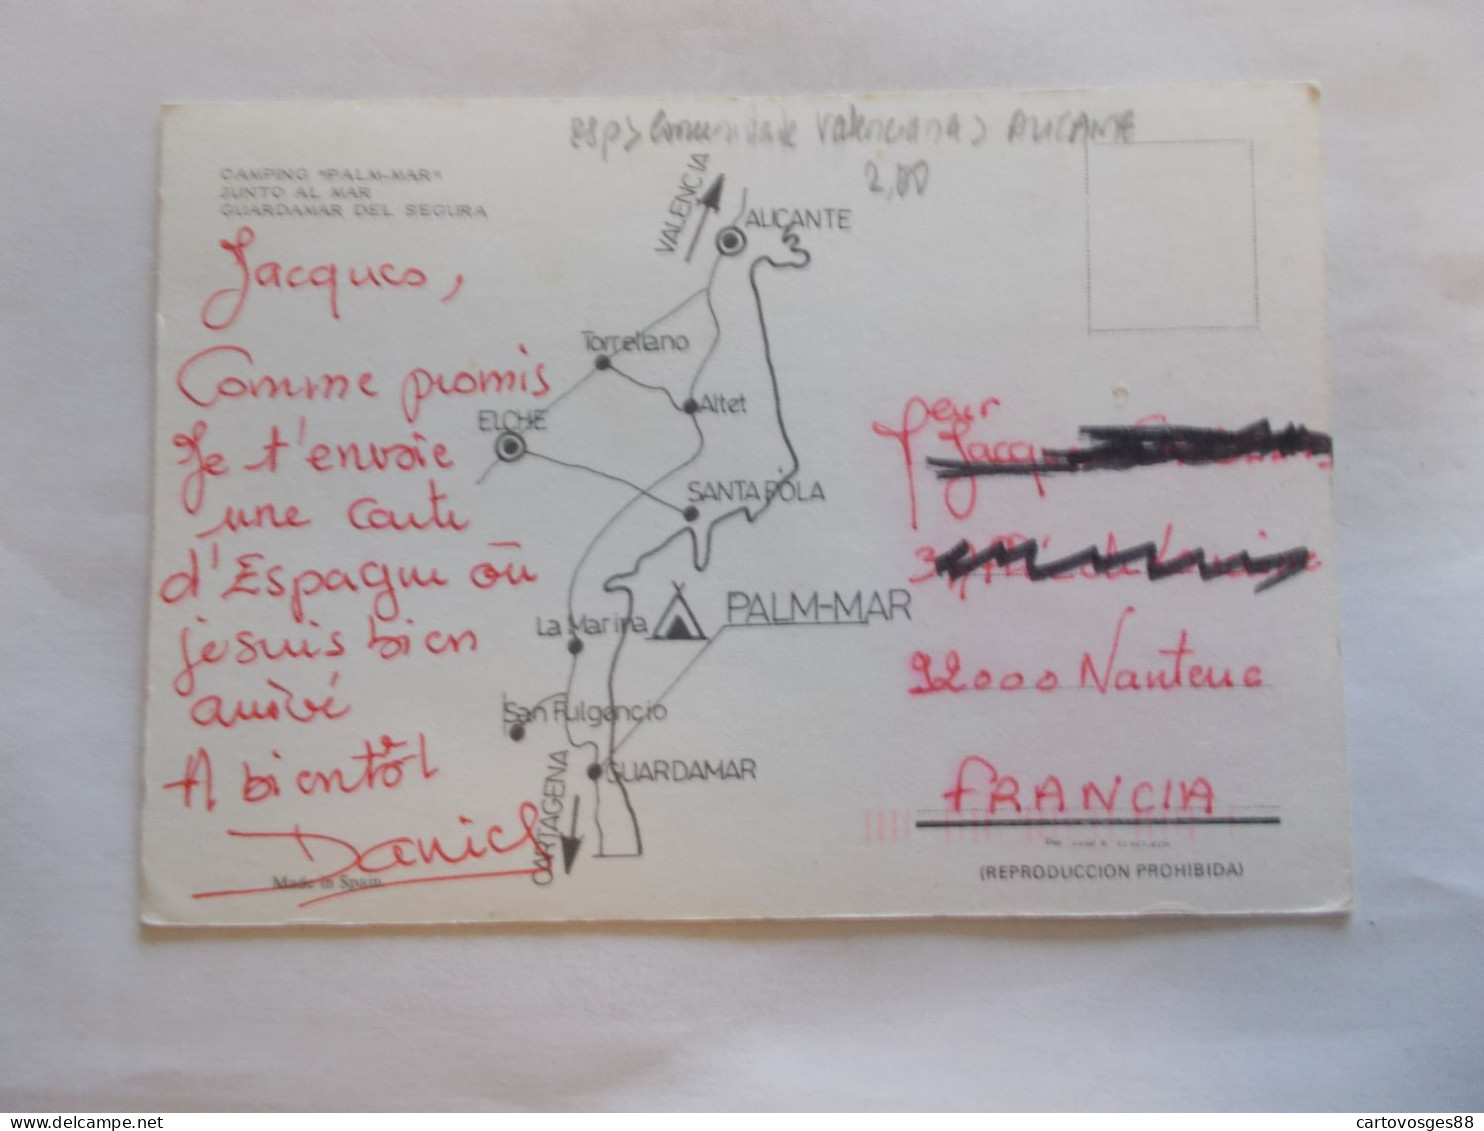 CAMPING "PALM-MAR"
JUNTO AL MAR
GUARDAMAR DEL SEGURA
Valenciana > ALICANTE
2,00
Jacques,
Comme promis
Je t'envoie
une carte
d'Espagne où
je suis bien
arrivé
A bientôt
Daniel
Made in Spain
VALENCIA
ALICANTE
Torrellano
Altet
ELCHE
SANTA POLA
PALM-MAR
La Marina
San Fulgencio
GUARDAMAR
CARTAGENA
pour
92000 Nanterre
FRANCIA
(REPRODUCCION PROHIBIDA)
cartovosges88